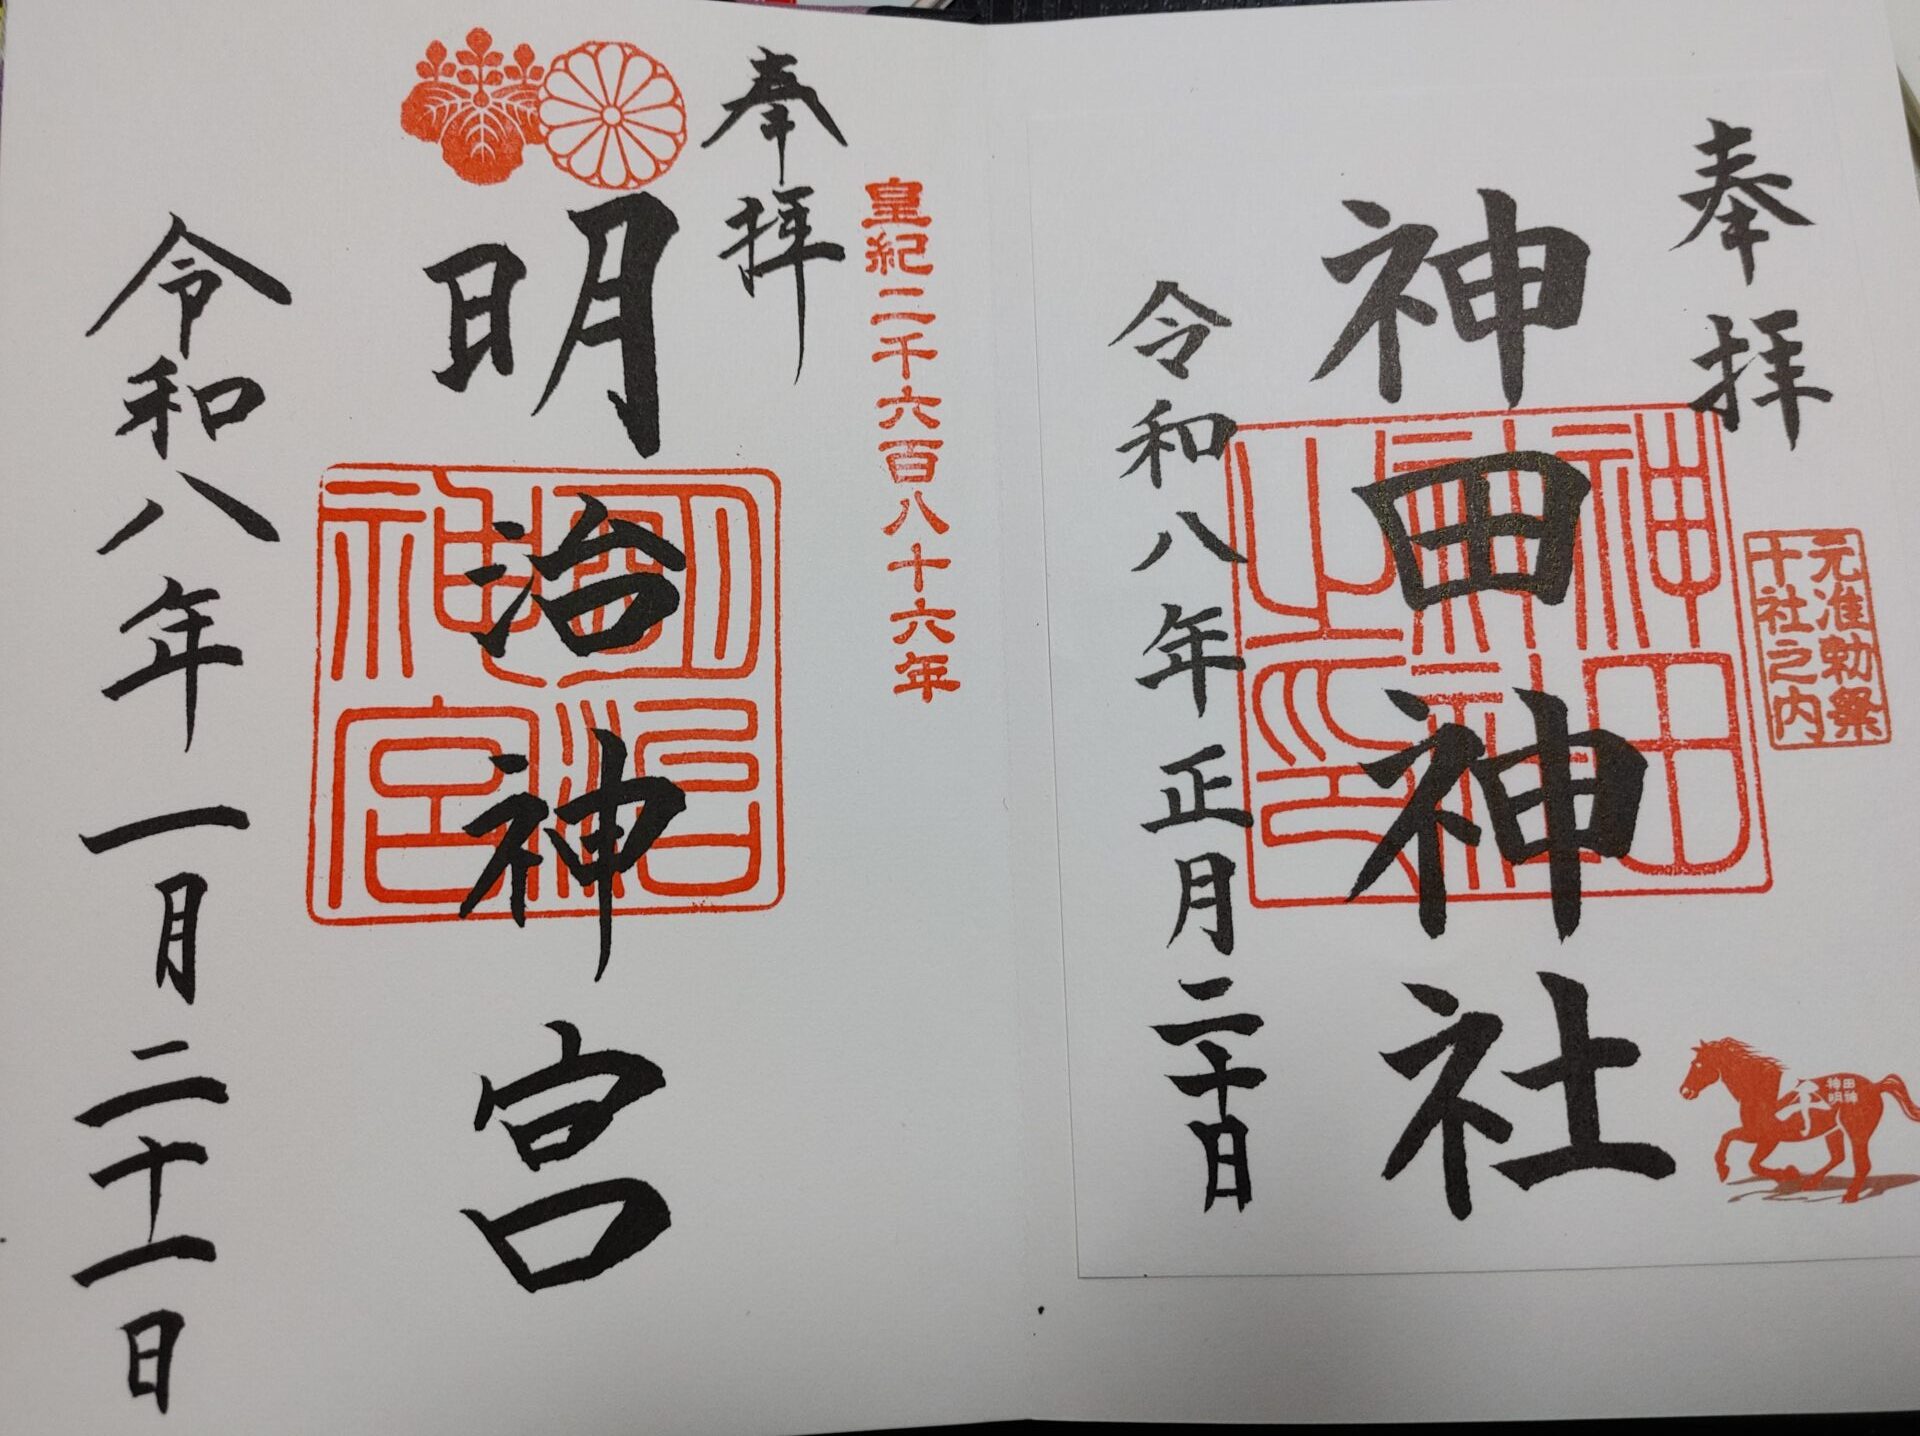 奉拝
元准勅祭
十社之内
神田神社
神田
神社
之印
令和八年正月二十日
午
神田神
明
皇紀二千六百八十六年
奉拝
明治神宮
明治
神宮
令和八年一月二十一日